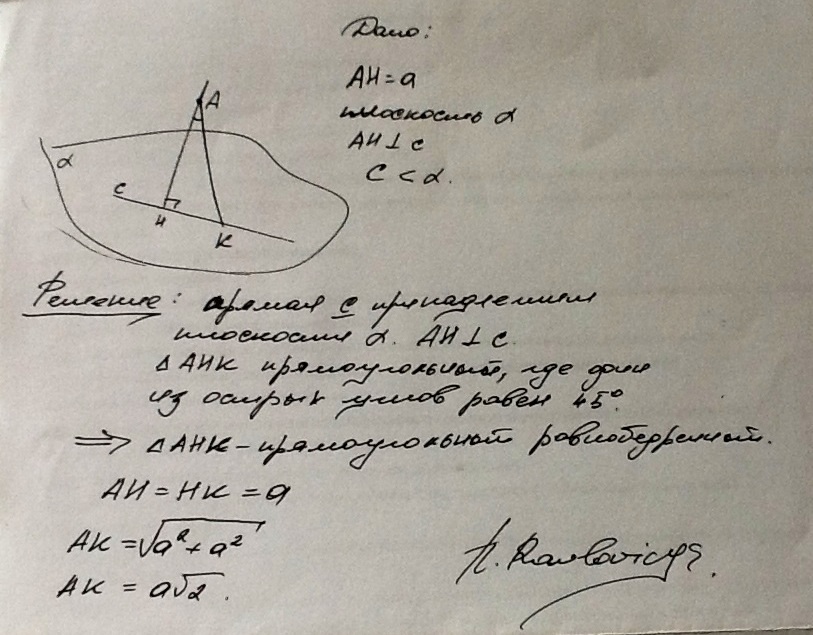 Дано:
AH = a
плоскость α
AH ⊥ c
C < α.
A
α
c
H
K
Решение: прямая c принадлежит
плоскости α. AH ⊥ c.
Δ AHK прямоугольный, где один
из острых углов равен 45°.
⇒ Δ AHK – прямоугольный равнобедренный.
AH = HK = a
AK = √a² + a²
AK = a√2.